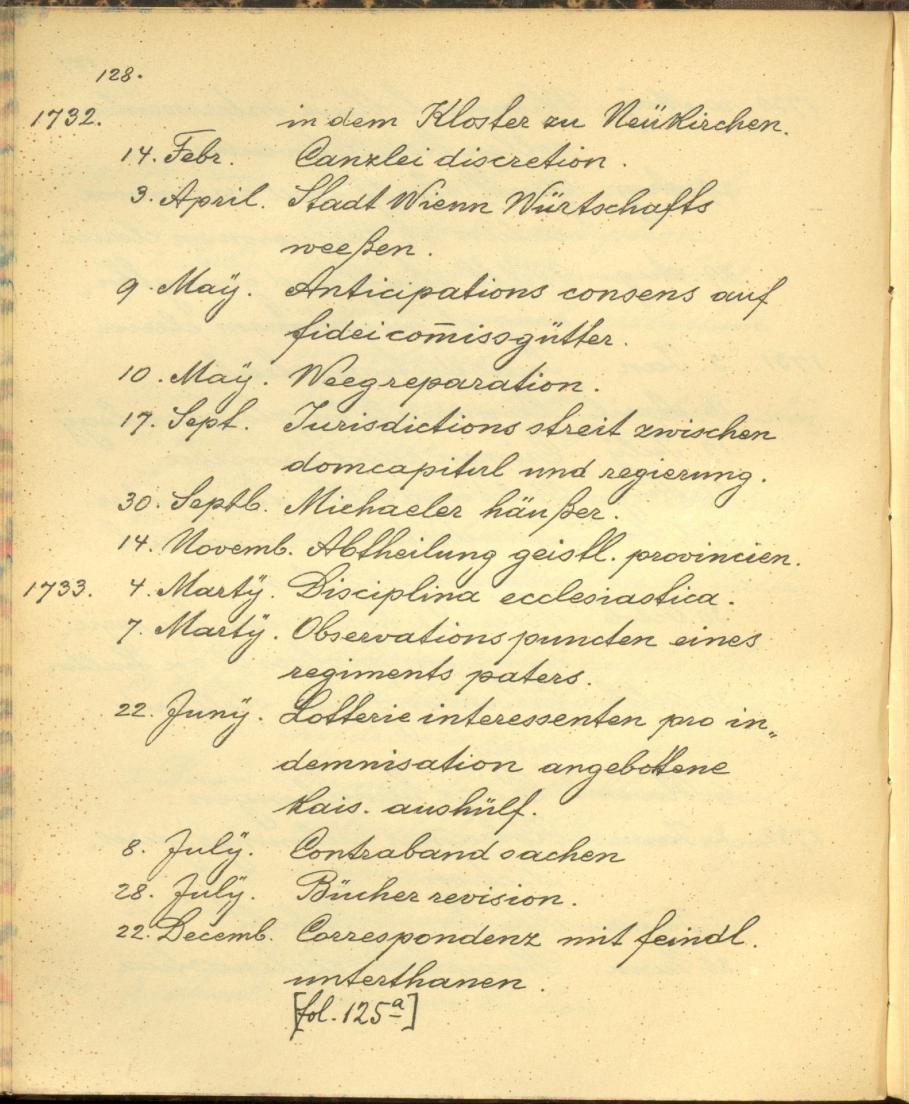 128.
1732. in dem Kloster zu Neükirchen.
14. Febr. Canzlei discretion.
3. April. Stadt Wienn Würtschafts
weeßen.
9. Maÿ. Anticipations consens auf
fideicom̄issgütter.
10. Maÿ. Weegreparation.
17. Sept. Jurisdictions streit zwischen
domcapitul und regierung.
30. Septb. Michaeler häußer.
14. Novemb. Abtheilung geistl. provincien.
1733. 4. Martÿ. Disciplina ecclesiastica.
7. Martÿ. Observationspuncten eines
regiments paters.
22. Junÿ. Lotterie interessenten pro in„
demnisation angebottene
kais. aushülf.
8. Julÿ. Contraband sachen
28. Julÿ. Bücher revision.
22. Decemb. Correspondenz mit feindl.
unterthanen.
[fol. 125a]